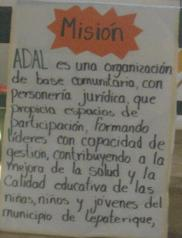 Misión
ADAL es una organización
de base comunitaria, con
personería jurídica, que
propicia espacios de
participación, formando
líderes con capacidad de
gestión, contribuyendo a la
mejora de la salud y la
calidad educativa de las
niñas, niños y jóvenes del
municipio de Lepaterique,